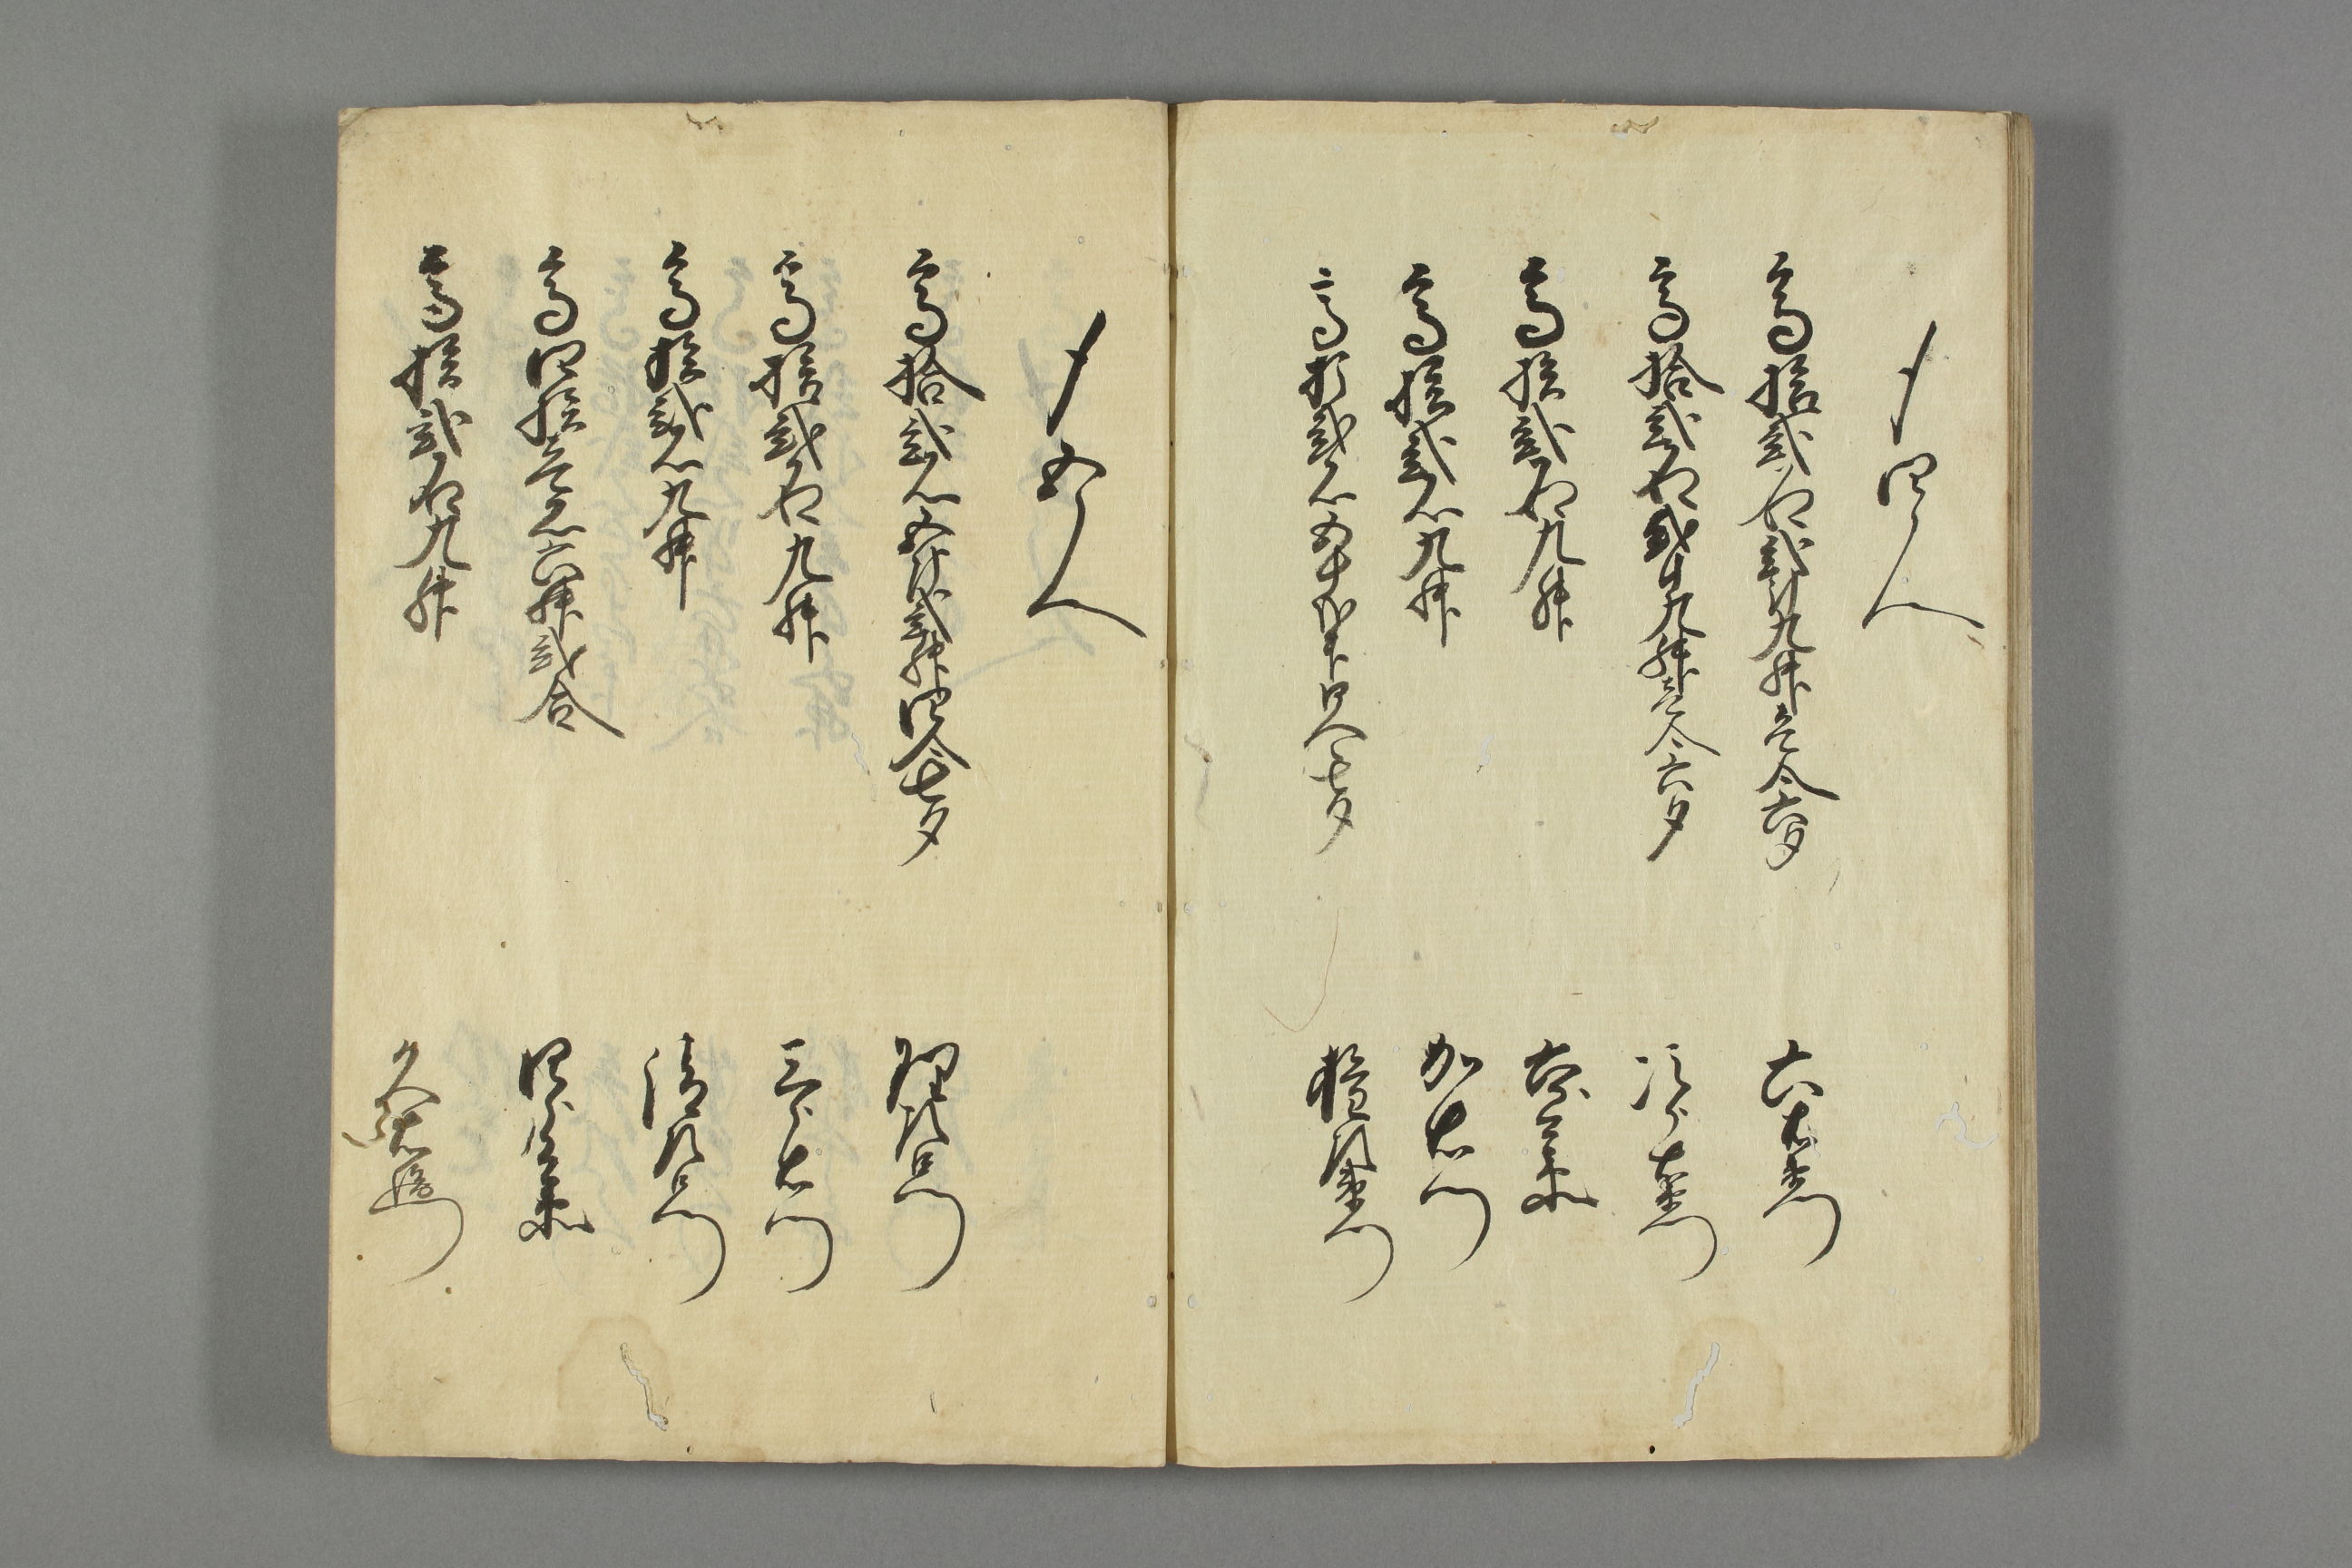 〆四人
高拾弐石弐斗九升壱合六夕 六右衛門
高拾弐石弐斗九升壱合六夕 次郎左衛門
高拾弐石九升
高拾弐石九升 加右衛門
高拾弐石五斗弐升四合七夕 権左衛門
〆五人
高拾弐石五斗弐升四合七夕 理右衛門
高拾弐石九升 三郎右衛門
高拾弐石九升 清左衛門
高四拾壱石六升弐合 四郎兵衛
高拾弐石九升